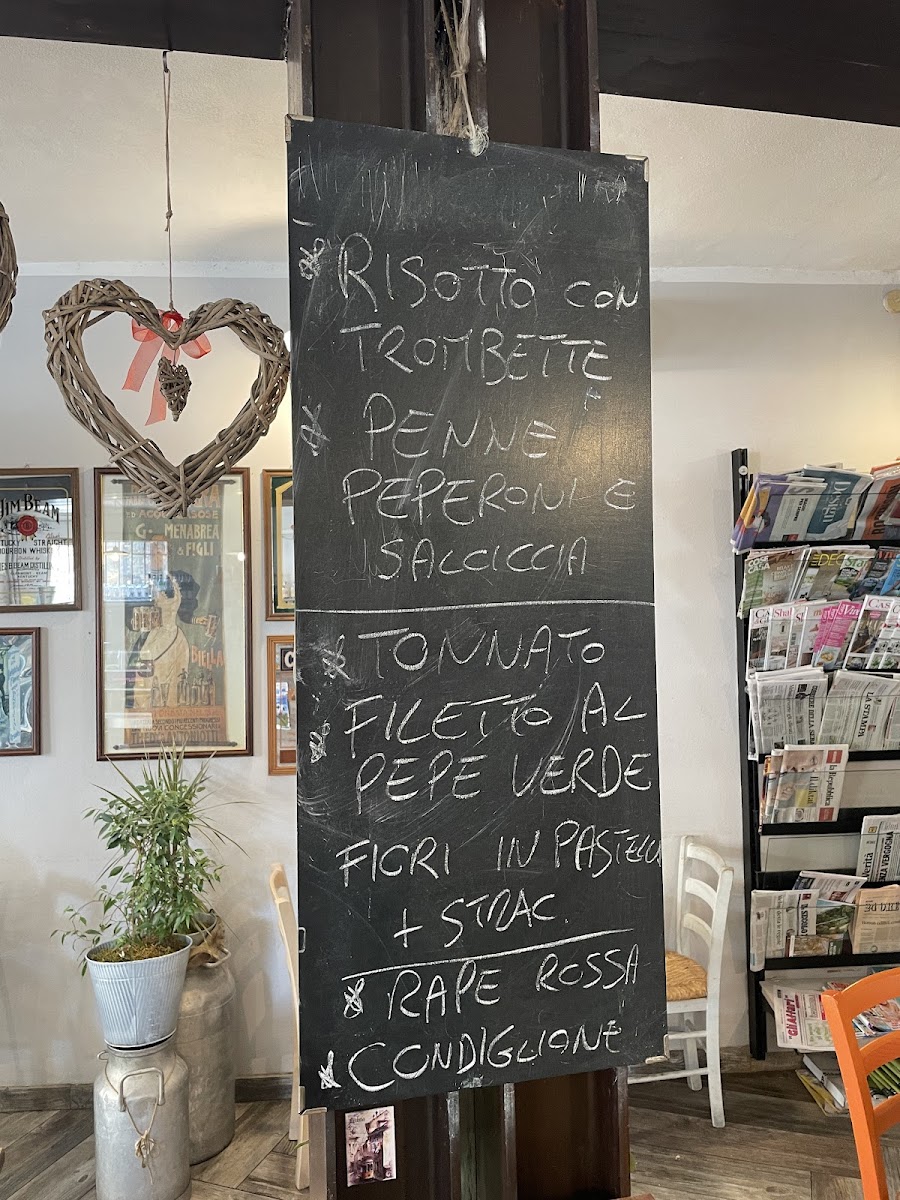 RISOTTO CON
TROMBETTE
PENNE
PEPERONI E
SALCICCIA
TONNATO
FILETTO AL
PEPE VERDE
FIORI IN PASTELLA
+ STRAC.
RAPE ROSSA
CONDIGLIONE
JIM BEAM
STRAIGHT
BOURBON WHISKY
G. MENABREA
& FIGLI
BIELLA
LA STAMPA
la Repubblica